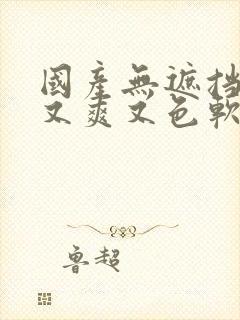 國產無遮挡
又爽又色軟
魯超